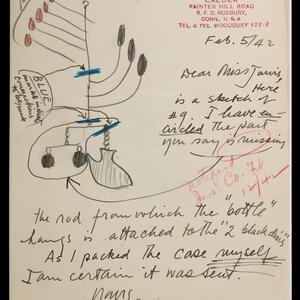 CALDER
PAINTER HILL ROAD
R. F. D. ROXBURY,
CONN., U S A
TEL. & TEL. WOODBURY 122-2
Feb. 5/42
Dear Miss Jarvis,
Here
is a sketch of
#9. I have en-
circled the part
you say is missing
BLUE
marks indicate
connections
to be made
Ins. Co. Feb
12/42
the rod from which the "bottle"
hangs is attached to the "2 black discs"
As I packed the case myself
I am certain it was sent.
Yours